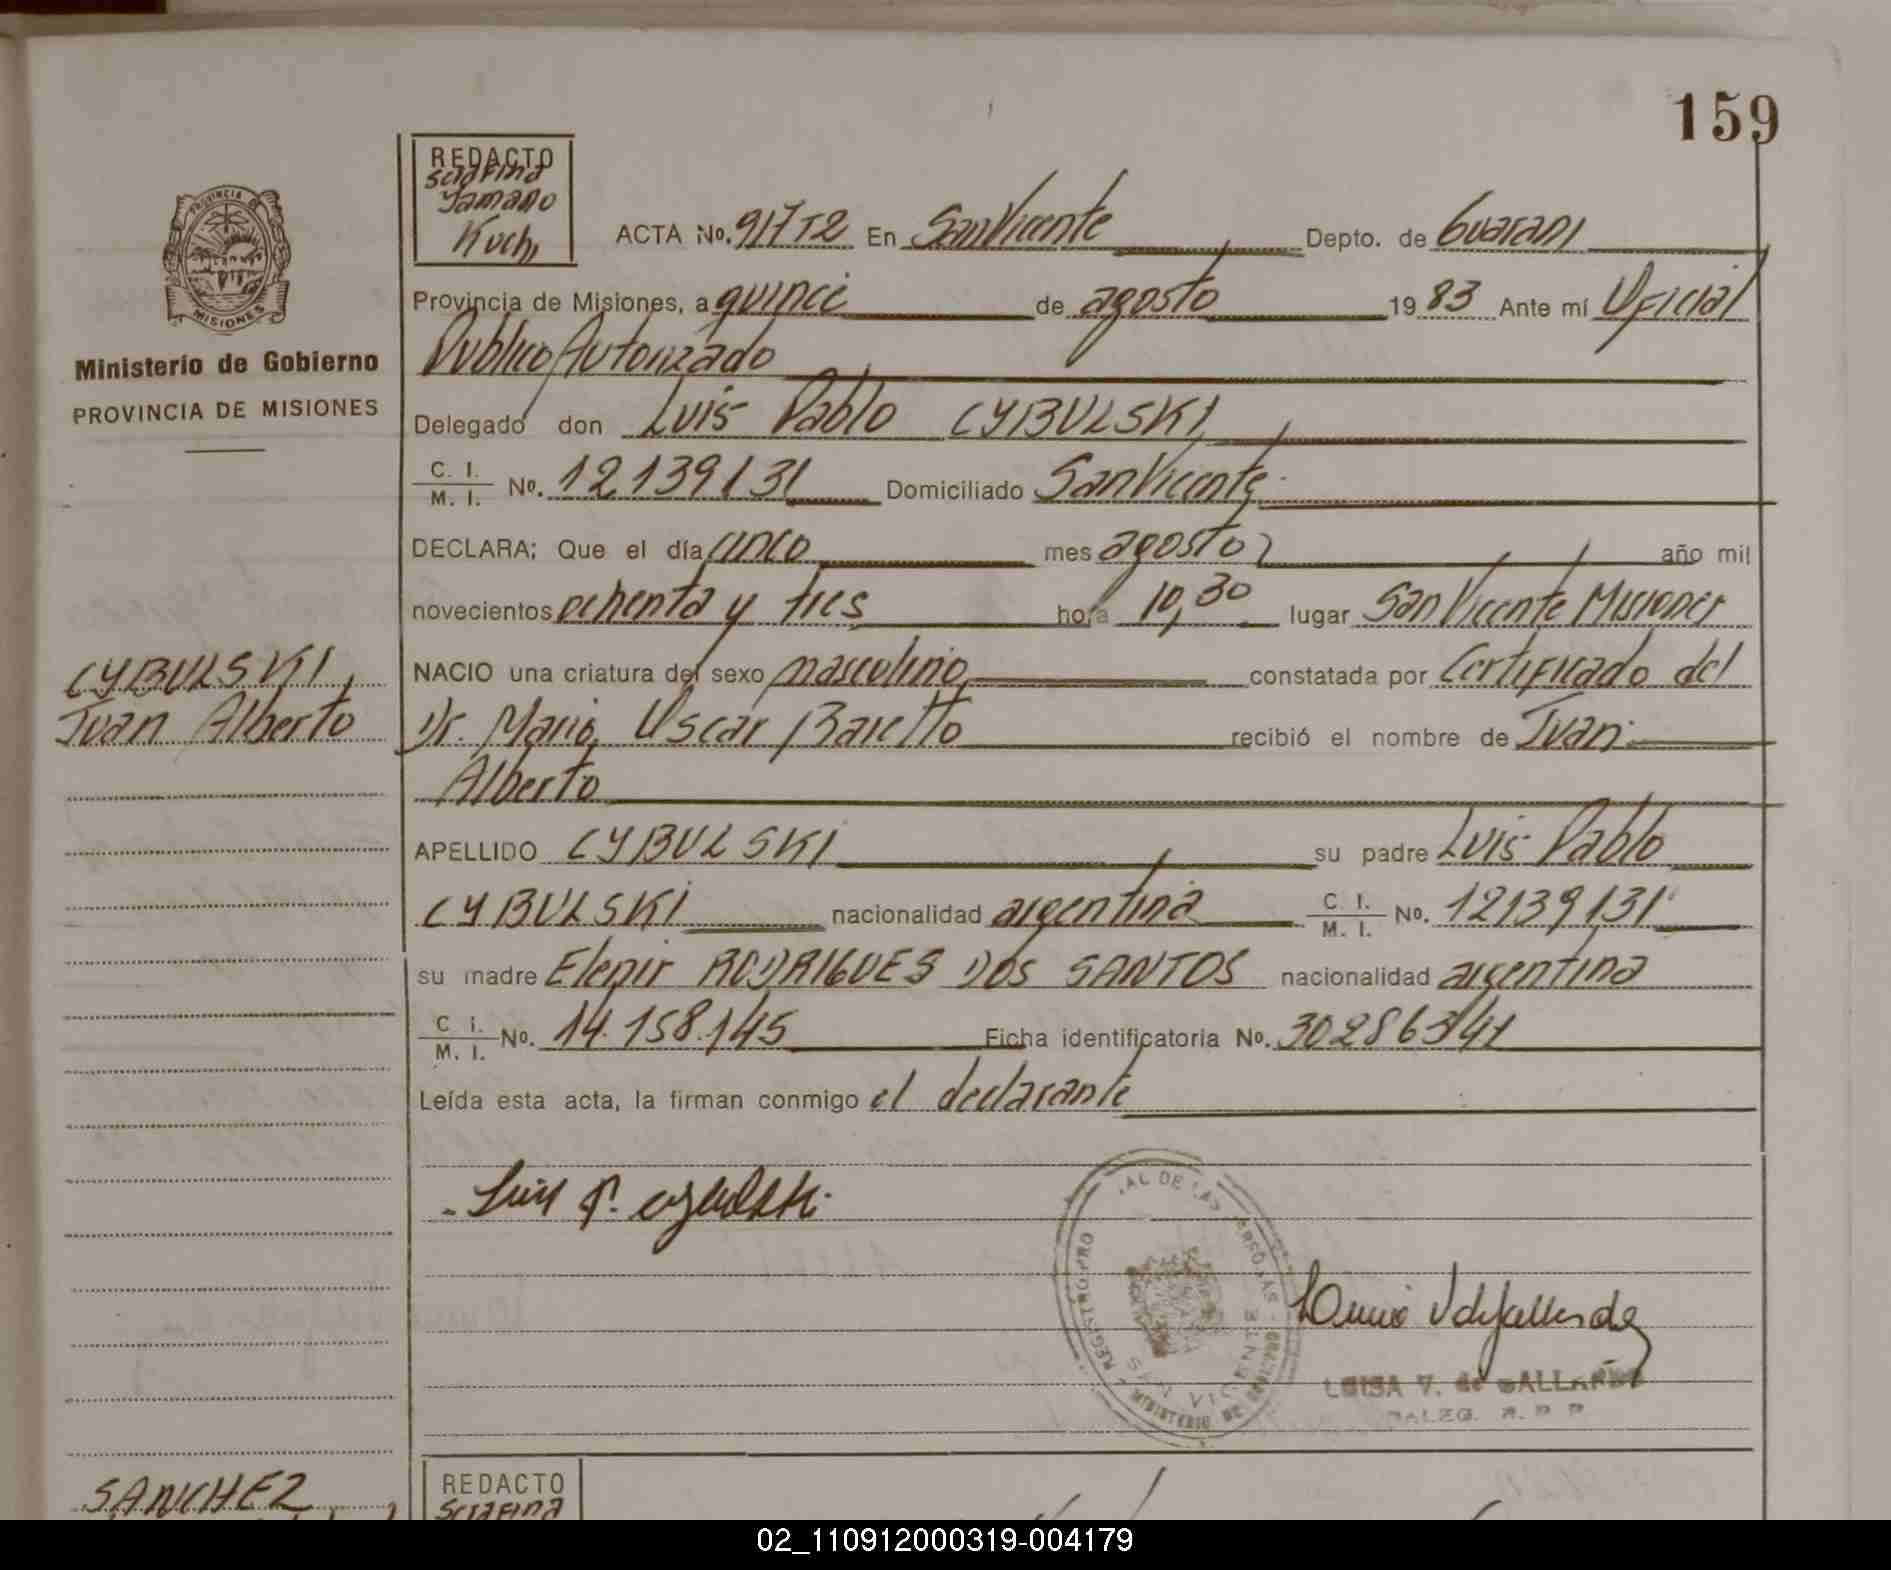 159
REDACTO
Serafina
Yamano
Kuchi
ACTA No. 917T2 En San Vicente Depto. de Guarani
PROVINCIA DE
MISIONES
Ministerio de Gobierno
PROVINCIA DE MISIONES
Provincia de Misiones, a quince de agosto 1983 Ante mí Oficial
Publico Autorizado
Delegado don Luis Pablo CYBULSKI
C. I.
M. I. No. 12139131 Domiciliado San Vicente
DECLARA: Que el día cinco mes agosto año mil
novecientos ochenta y tres hora 10,30 lugar San Vicente Misiones
CYBULSKI
Juan Alberto
NACIO una criatura del sexo masculino constatada por Certificado del
Dr. Mario Oscar Baretto recibió el nombre de Juan
Alberto
APELLIDO CYBULSKI su padre Luis Pablo
CYBULSKI nacionalidad argentina C. I.
M. I. No. 12139131
su madre Elenir RODRIGUES DOS SANTOS nacionalidad argentina
C. I.
M. I. No. 14.158.145 Ficha identificatoria No. 302863/41
Leída esta acta, la firman conmigo el declarante
Luis P. Cybulski
REGISTRO PRO AL DE LAS PERSONAS
MINISTERIO DE
LUISA V. de GALLARDO
DALEG. R. P. P.
SANCHEZ
REDACTO
Serafina
02_110912000319-004179